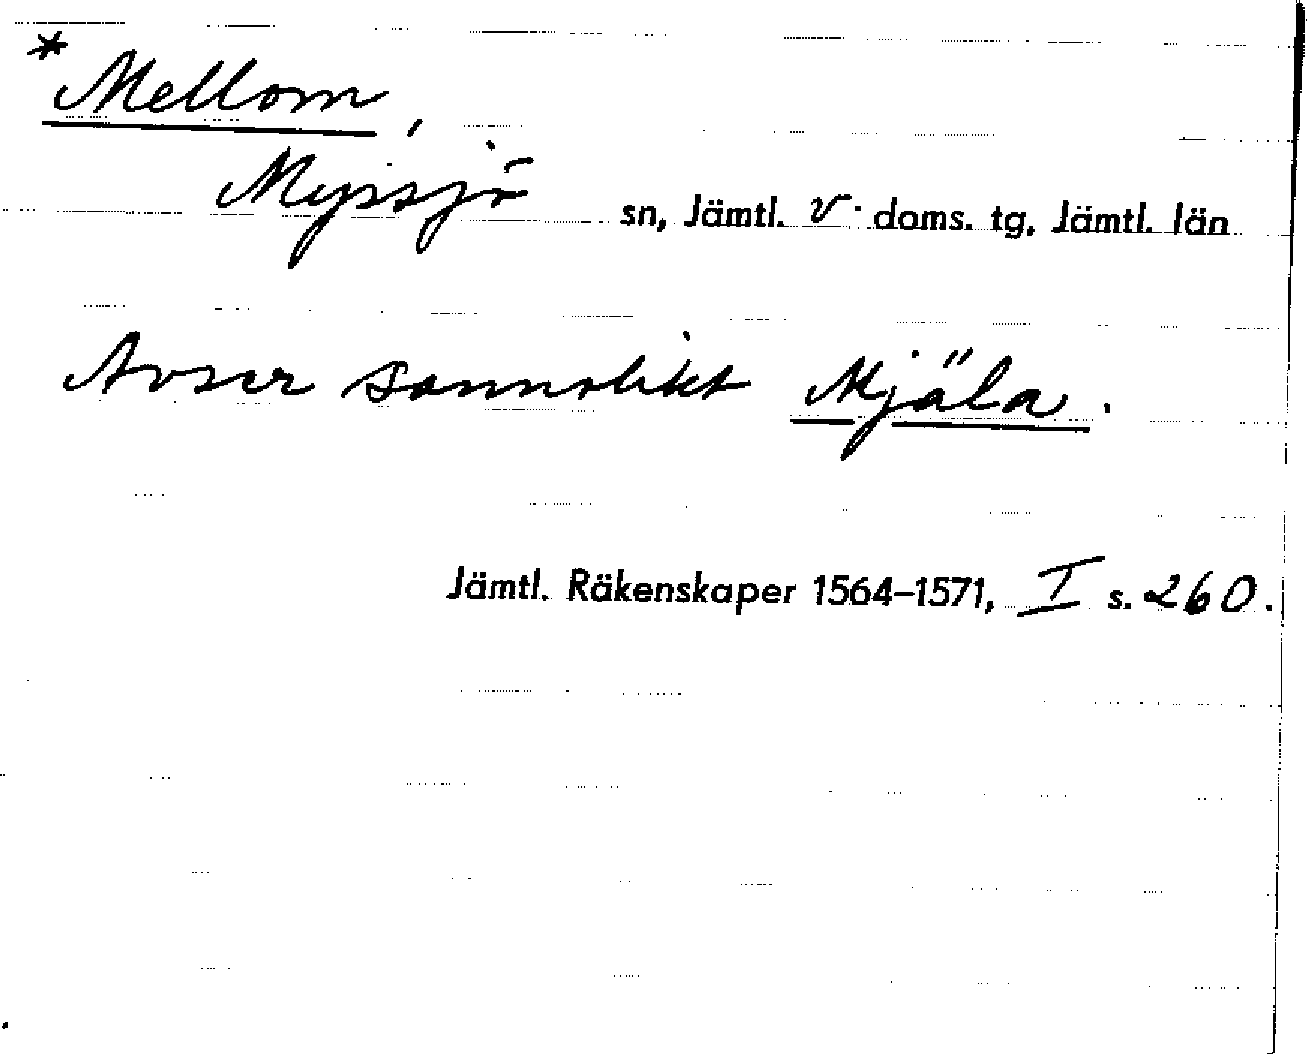 * Mellom,
Myssjö sn, Jämtl. v. doms. tg, Jämtl. län
Avser sannolikt Mjäla.
Jämtl. Räkenskaper 1564–1571, I s. 260.